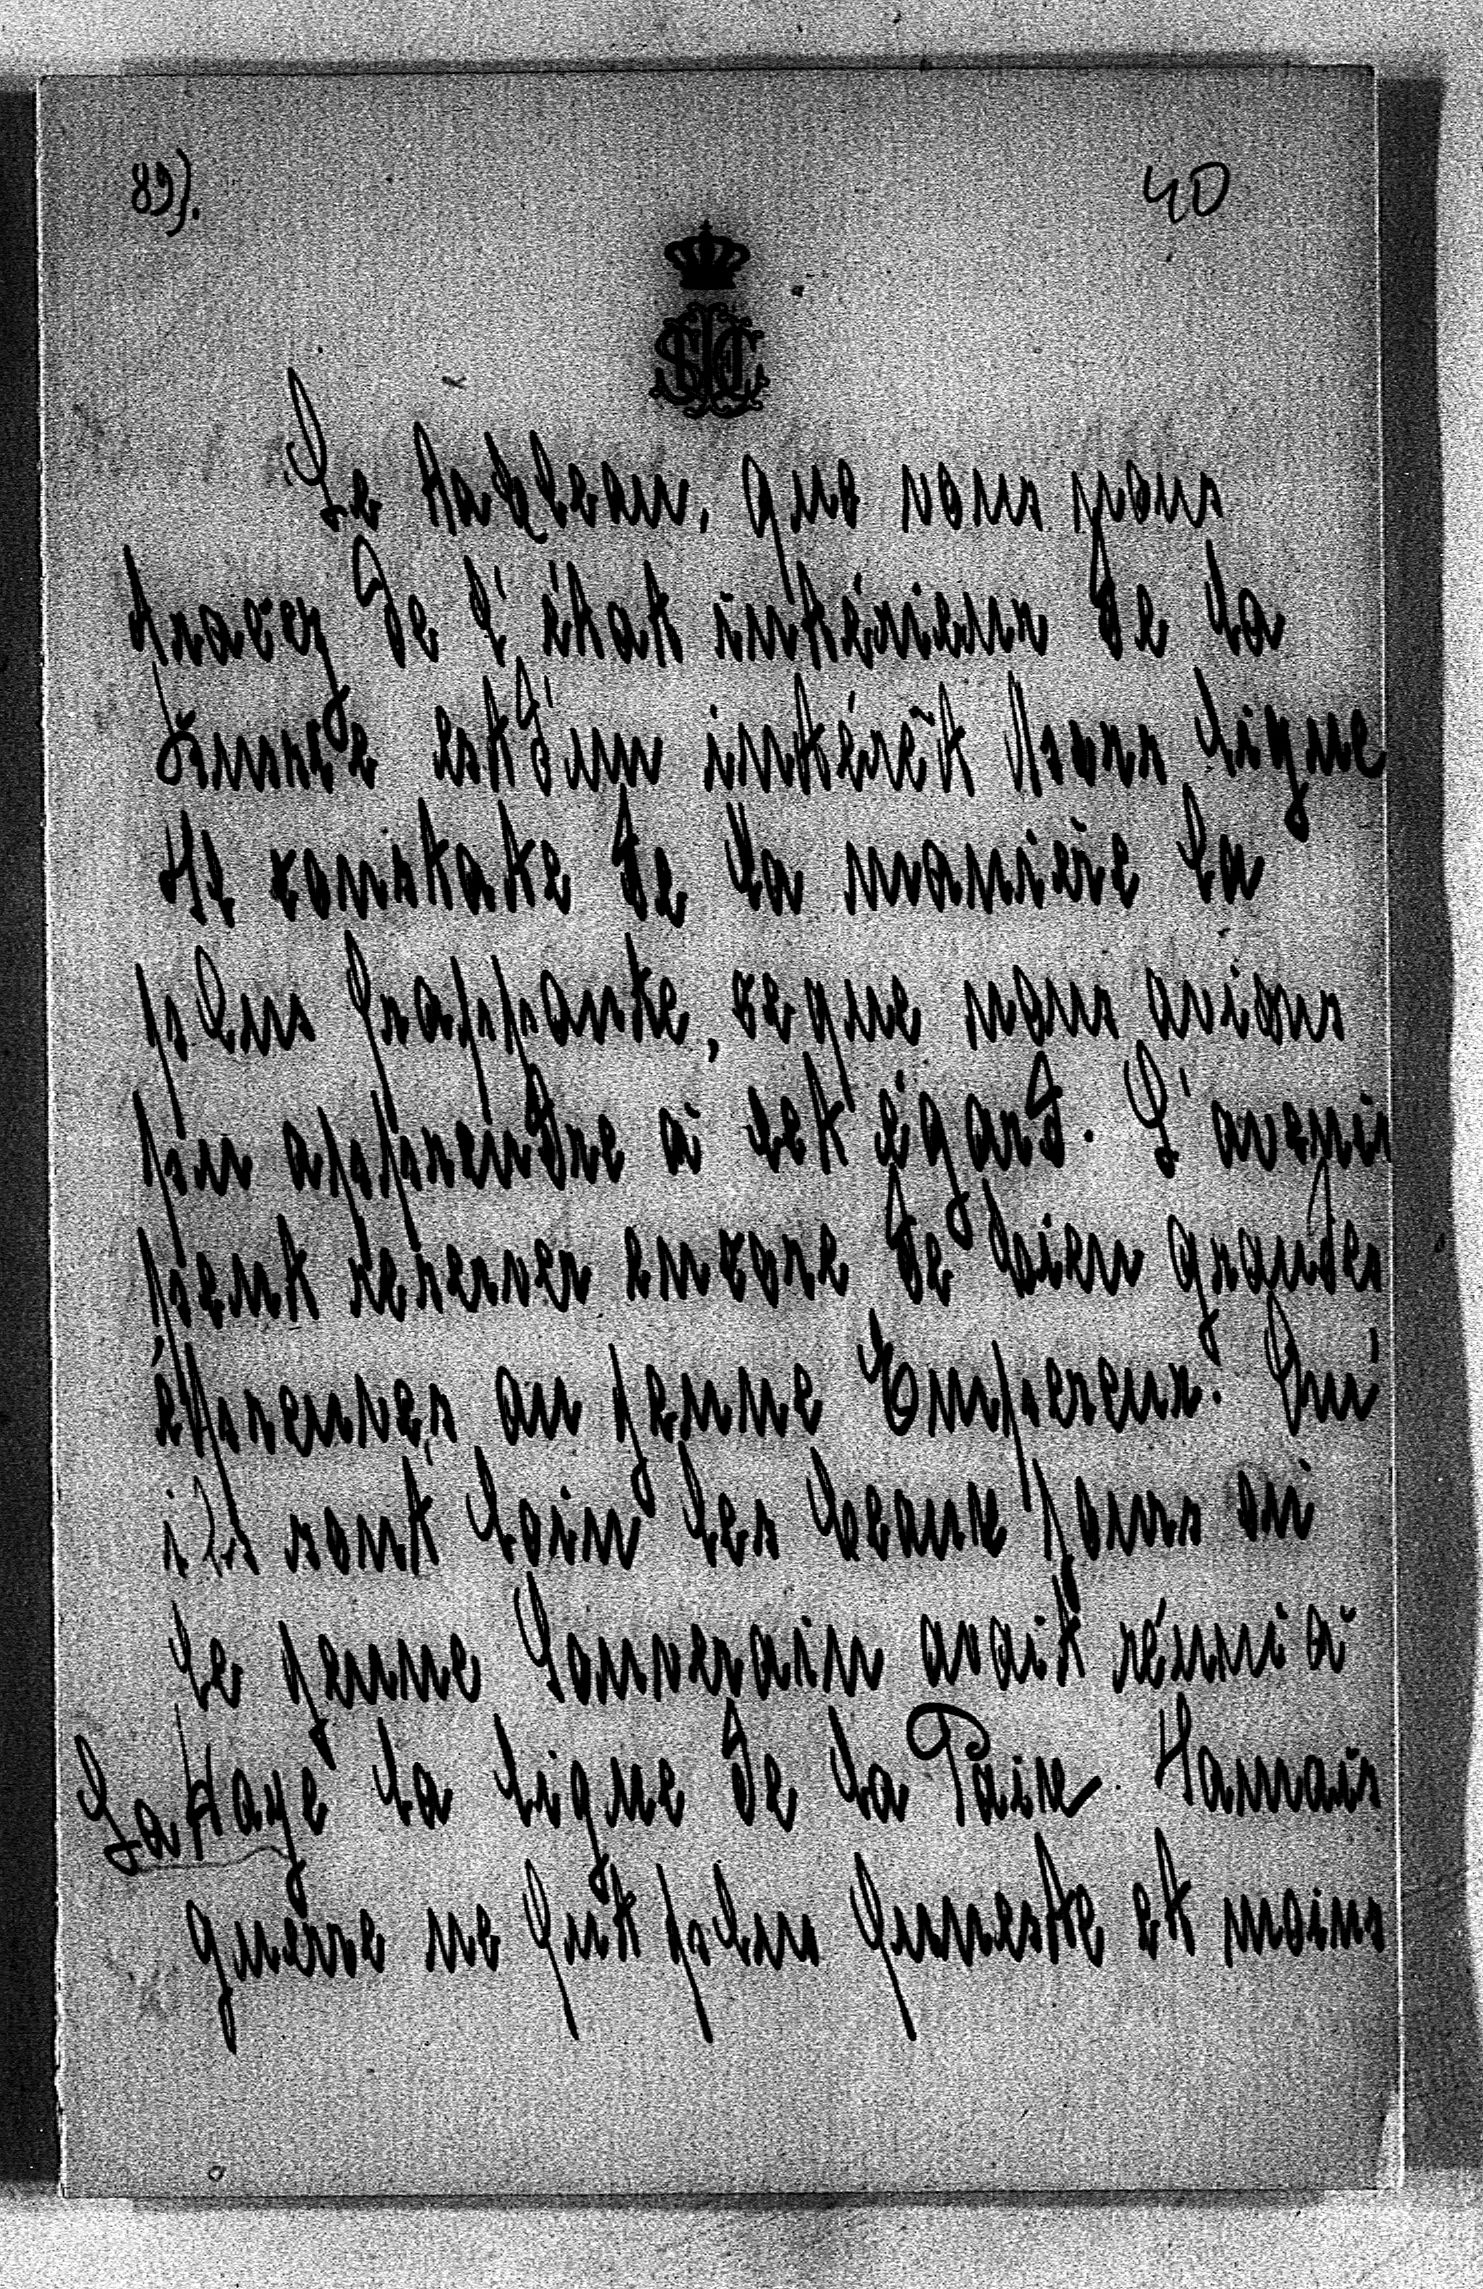 89).
40
Le tableau, que vous vous
tracez de l'état intérieur de la
Russie est d'un intérêt hors ligne
et constate de la manière la
plus frappante, ce que nous avions
pu apprendre à cet égard. L'avenir
peut réserver encore de bien grandes
épreuves au jeune Empereur. Qu'
ils sont loin les beaux jours où
le jeune Souverain avait réuni à
La Haye la ligue de la Paix. Jamais
guerre ne fut plus funeste et moins